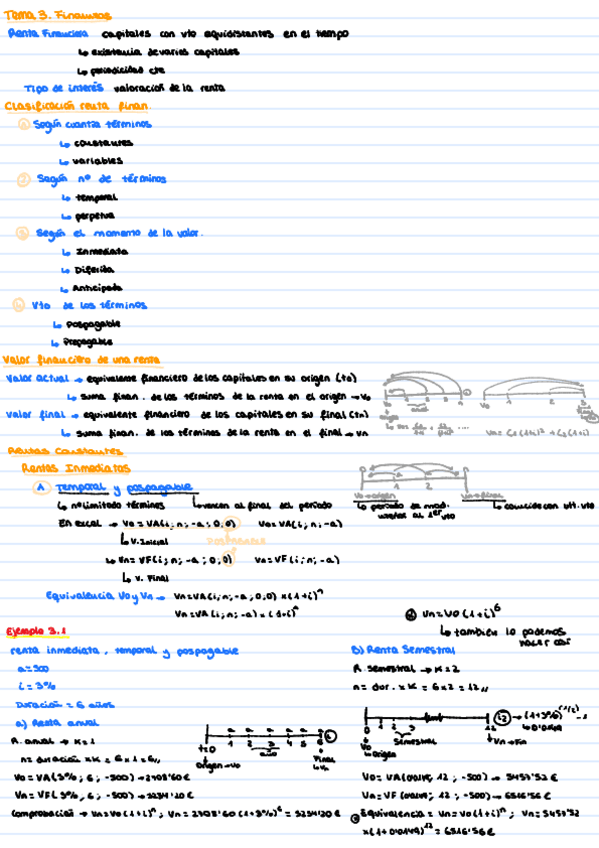 Tema 3. Finanzas
Renta Financiera capitales con vto equidistantes en el tiempo
↳ existencia de varios capitales
↳ periodicidad cte
Tipo de interés valoración de la renta
Clasificación renta finan.
1 Según cuantía términos
↳ constantes
↳ variables
2 Según nº de términos
↳ temporal
↳ perpetua
3 Según el momento de la valor.
↳ Inmediata
↳ Diferida
↳ Anticipada
4 Vto de los términos
↳ Pospagable
↳ Prepagable
Valor financiero de una renta
Valor actual → equivalente financiero de los capitales en su origen (t0)
↳ suma finan. de los términos de la renta en el origen → V0
Valor final → equivalente financiero de los capitales en su final (tn)
↳ suma finan. de los términos de la renta en el final → Vn
Rentas Constantes
Rentas Inmediatas
A Temporal y pospagable
↳ nº limitado términos ↳ vencen al final del periodo
V0 → origen
Vn → final
↳ coincide con ult. vto
En excel → V0 = VA(i; n; -a; 0; 0) V0 = VA(i; n; -a)
↳ V. Inicial
↳ Vn = VF(i; n; -a; 0; 0) Vn = VF(i; n; -a)
↳ V. Final
Equivalencia V0 y Vn → Vn = VA(i; n; -a; 0; 0) x (1+i)^n
Vn = VA(i; n; -a) x (1+i)^n
Vn = V0 (1+i)^6
↳ también lo podemos hacer así
Ejemplo 3.1
renta inmediata, temporal y pospagable
a = 500
i = 3%
Duración = 6 años
a) Renta anual
R. anual → K = 1
n = duración x K = 6 x 1 = 6,,
t=0 1 2 3 4 5 6
año
Origen → V0
Final
↳ Vn
V0 = VA(3%; 6; -500) → 2708'60 €
Vn = VF(3%; 6; -500) → 3234'20 €
Comprobación → Vn = V0 (1+i)^n; Vn = 2708'60 (1+3%)^6 = 3234'20 €
B) Renta Semestral
R. semestral → K = 2
n = dor. x K = 6 x 2 = 12,,
i2 → (1+3%)^(1/2) - 1
↳ 0'0149
0 1 2 3 12
Semestral
V0
↳ Origen
↳ Vn → Fin
V0 = VA(0'0149; 12; -500) → 5457'52 €
Vn = VF(0'0149; 12; -500) → 6516'56 €
Equivalencia = Vn = V0 (1+i)^n; Vn = 5457'52
x (1+0'0149)^12 = 6516'56 €